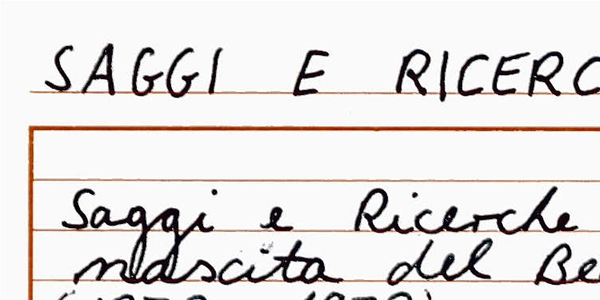 SAGGI E RICERC
Saggi e Ricerche
nascita del Be